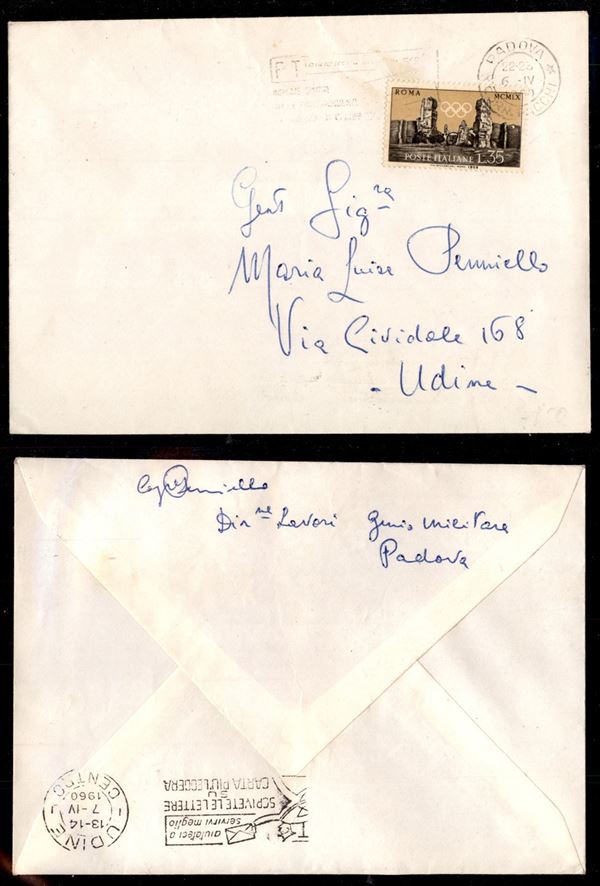 P T
PADOVA
22-23
6 -IV
ROMA MCMLIX
POSTE ITALIANE L.35
Gent Sigra
Maria Luisa Penniello
Via Cividale 168
- Udine -
Penniello
Dirne Lavori Genio Militare
Padova
UDINE
13-14
7 -IV
1960
CENTRO
aiutateci a
servirvi meglio
SCRIVETE LE LETTERE
SU
CARTA PIU' LEGGERA